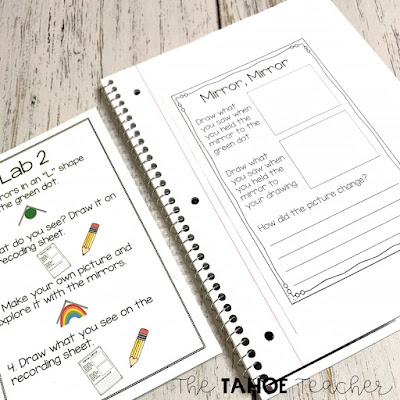 Lab 2
rors in an "L" shape
the green dot.
hat do you see? Draw it on
recoding sheet.
Make your own picture and
explore it with the mirrors.
4. Draw what you see on the
recording sheet.
Mirror, Mirror
Draw what
you saw when
you held the
mirror to the
green dot.
Draw what
you saw when
you held the
mirror to
your drawing
How did the picture change?
The TAHOE Teacher